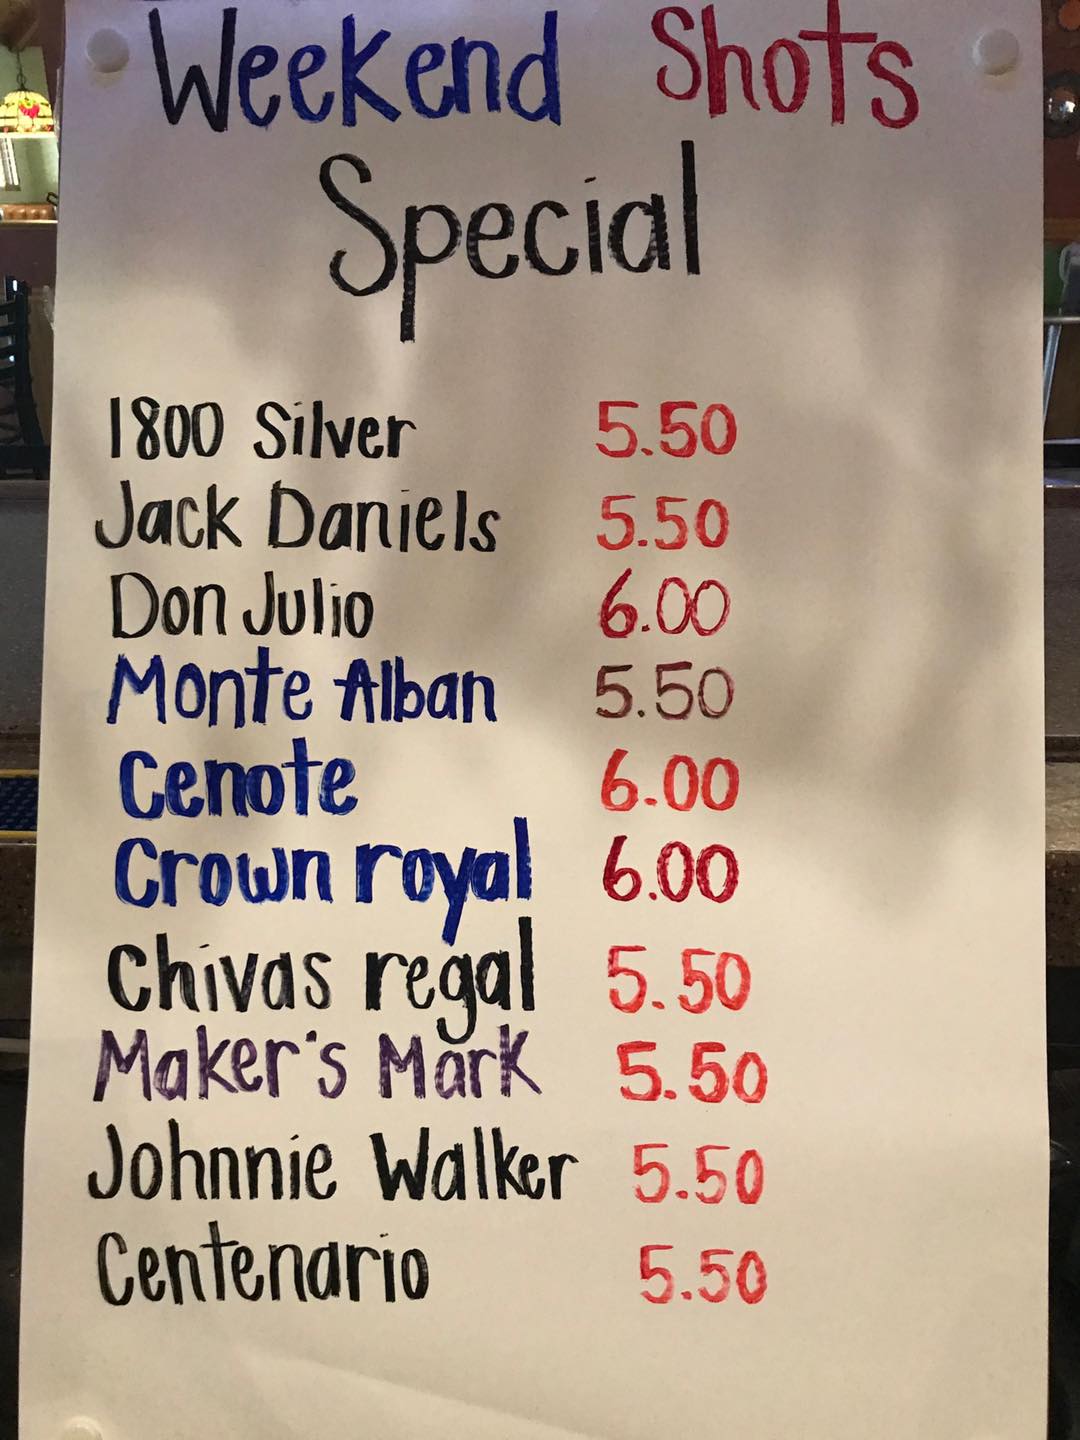 Weekend Shots
Special
1800 Silver 5.50
Jack Daniels 5.50
Don Julio 6.00
Monte Alban 5.50
Cenote 6.00
Crown royal 6.00
Chivas regal 5.50
Maker's Mark 5.50
Johnnie Walker 5.50
Centenario 5.50